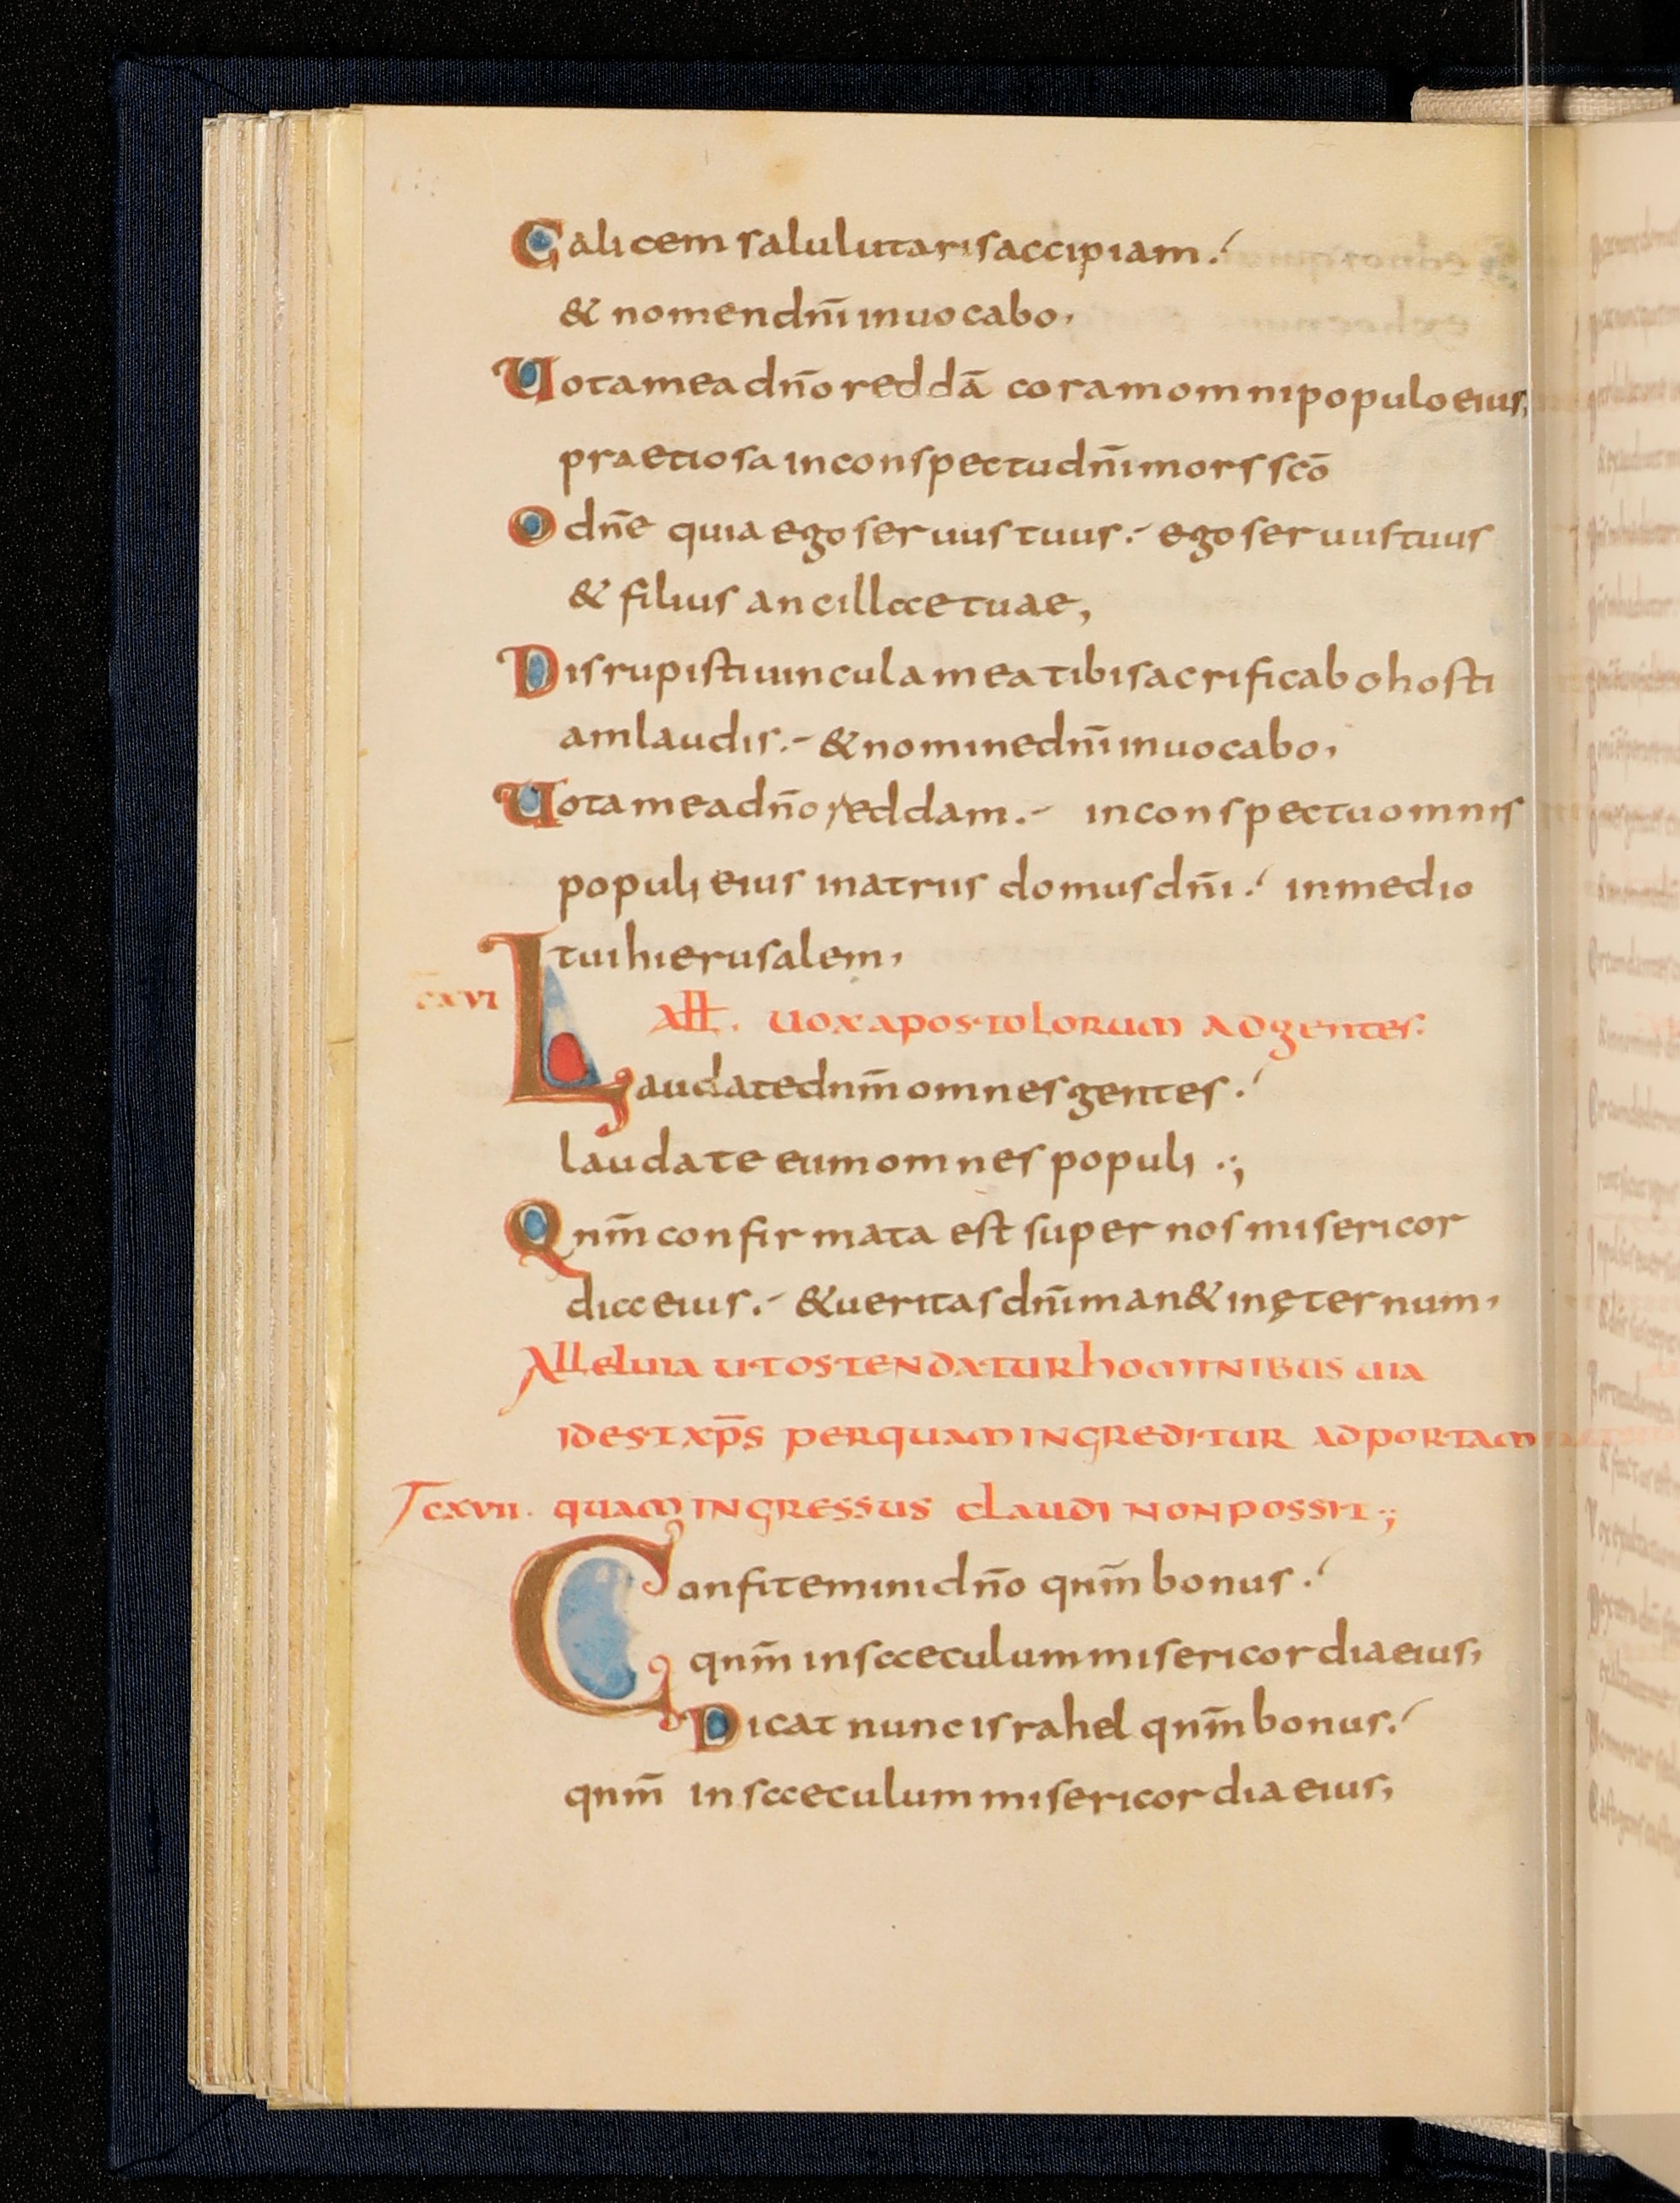 Calicem salulutaris accipiam.
& nomen dnī inuocabo,
Uota mea dn̄o reddā coram omni populo eius,
praetiosa in conspectu dnī mors scō
O dn̄e quia ego seruus tuus. ego seruus tuus
& filius ancillae tuae,
Disrupisti uincula mea tibi sacrificabo hosti
am laudis. & nomine dnī inuocabo,
Uota mea dn̄o reddam. in conspectu omnis
populi eius in atriis domus dnī. in medio
tui hierusalem,
c̄xvi
All. uox apostolorum ad gentes:
Laudate dnm̄ omnes gentes.
laudate eum omnes populi .;
Qnm̄ confirmata est super nos misericor
dia eius. & ueritas dnī man& in ęternum,
Alleluia ut ostendatur hominibus uia
id est xp̄s per quam ingreditur ad portam
cxvii. quam ingressus claudi non possit.;
Confitemini dn̄o qnm̄ bonus.
qnm̄ in saeculum misericordia eius,
Dicat nunc israhel qnm̄ bonus.
qnm̄ in saeculum misericordia eius,